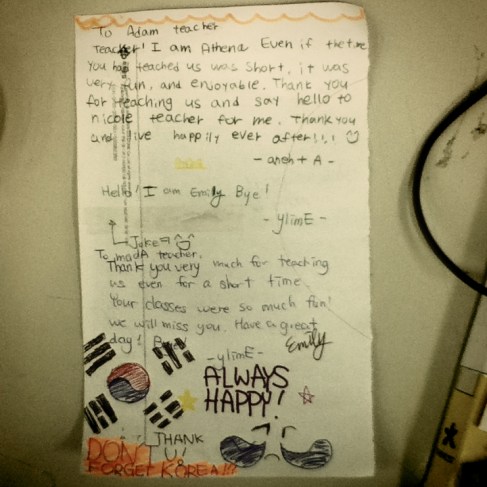 To Adam teacher
Teacher! I am Athena Even if the time
you had teached us was short, it was
very fun, and enjoyable. Thank you
for teaching us and say hello to
nicole teacher for me. Thank you
and live happily ever after!!!
- aneht A -
Hello! I am Emily Bye!
- ylimE -
Joke
To madA teacher,
Thank you very much for teaching
us even for a short time
Your classes were so much fun!
we will miss you. Have a great
day!
Emily
- ylimE -
ALWAYS
HAPPY!
THANK
U!
DON'T
FORGET KOREA!!!